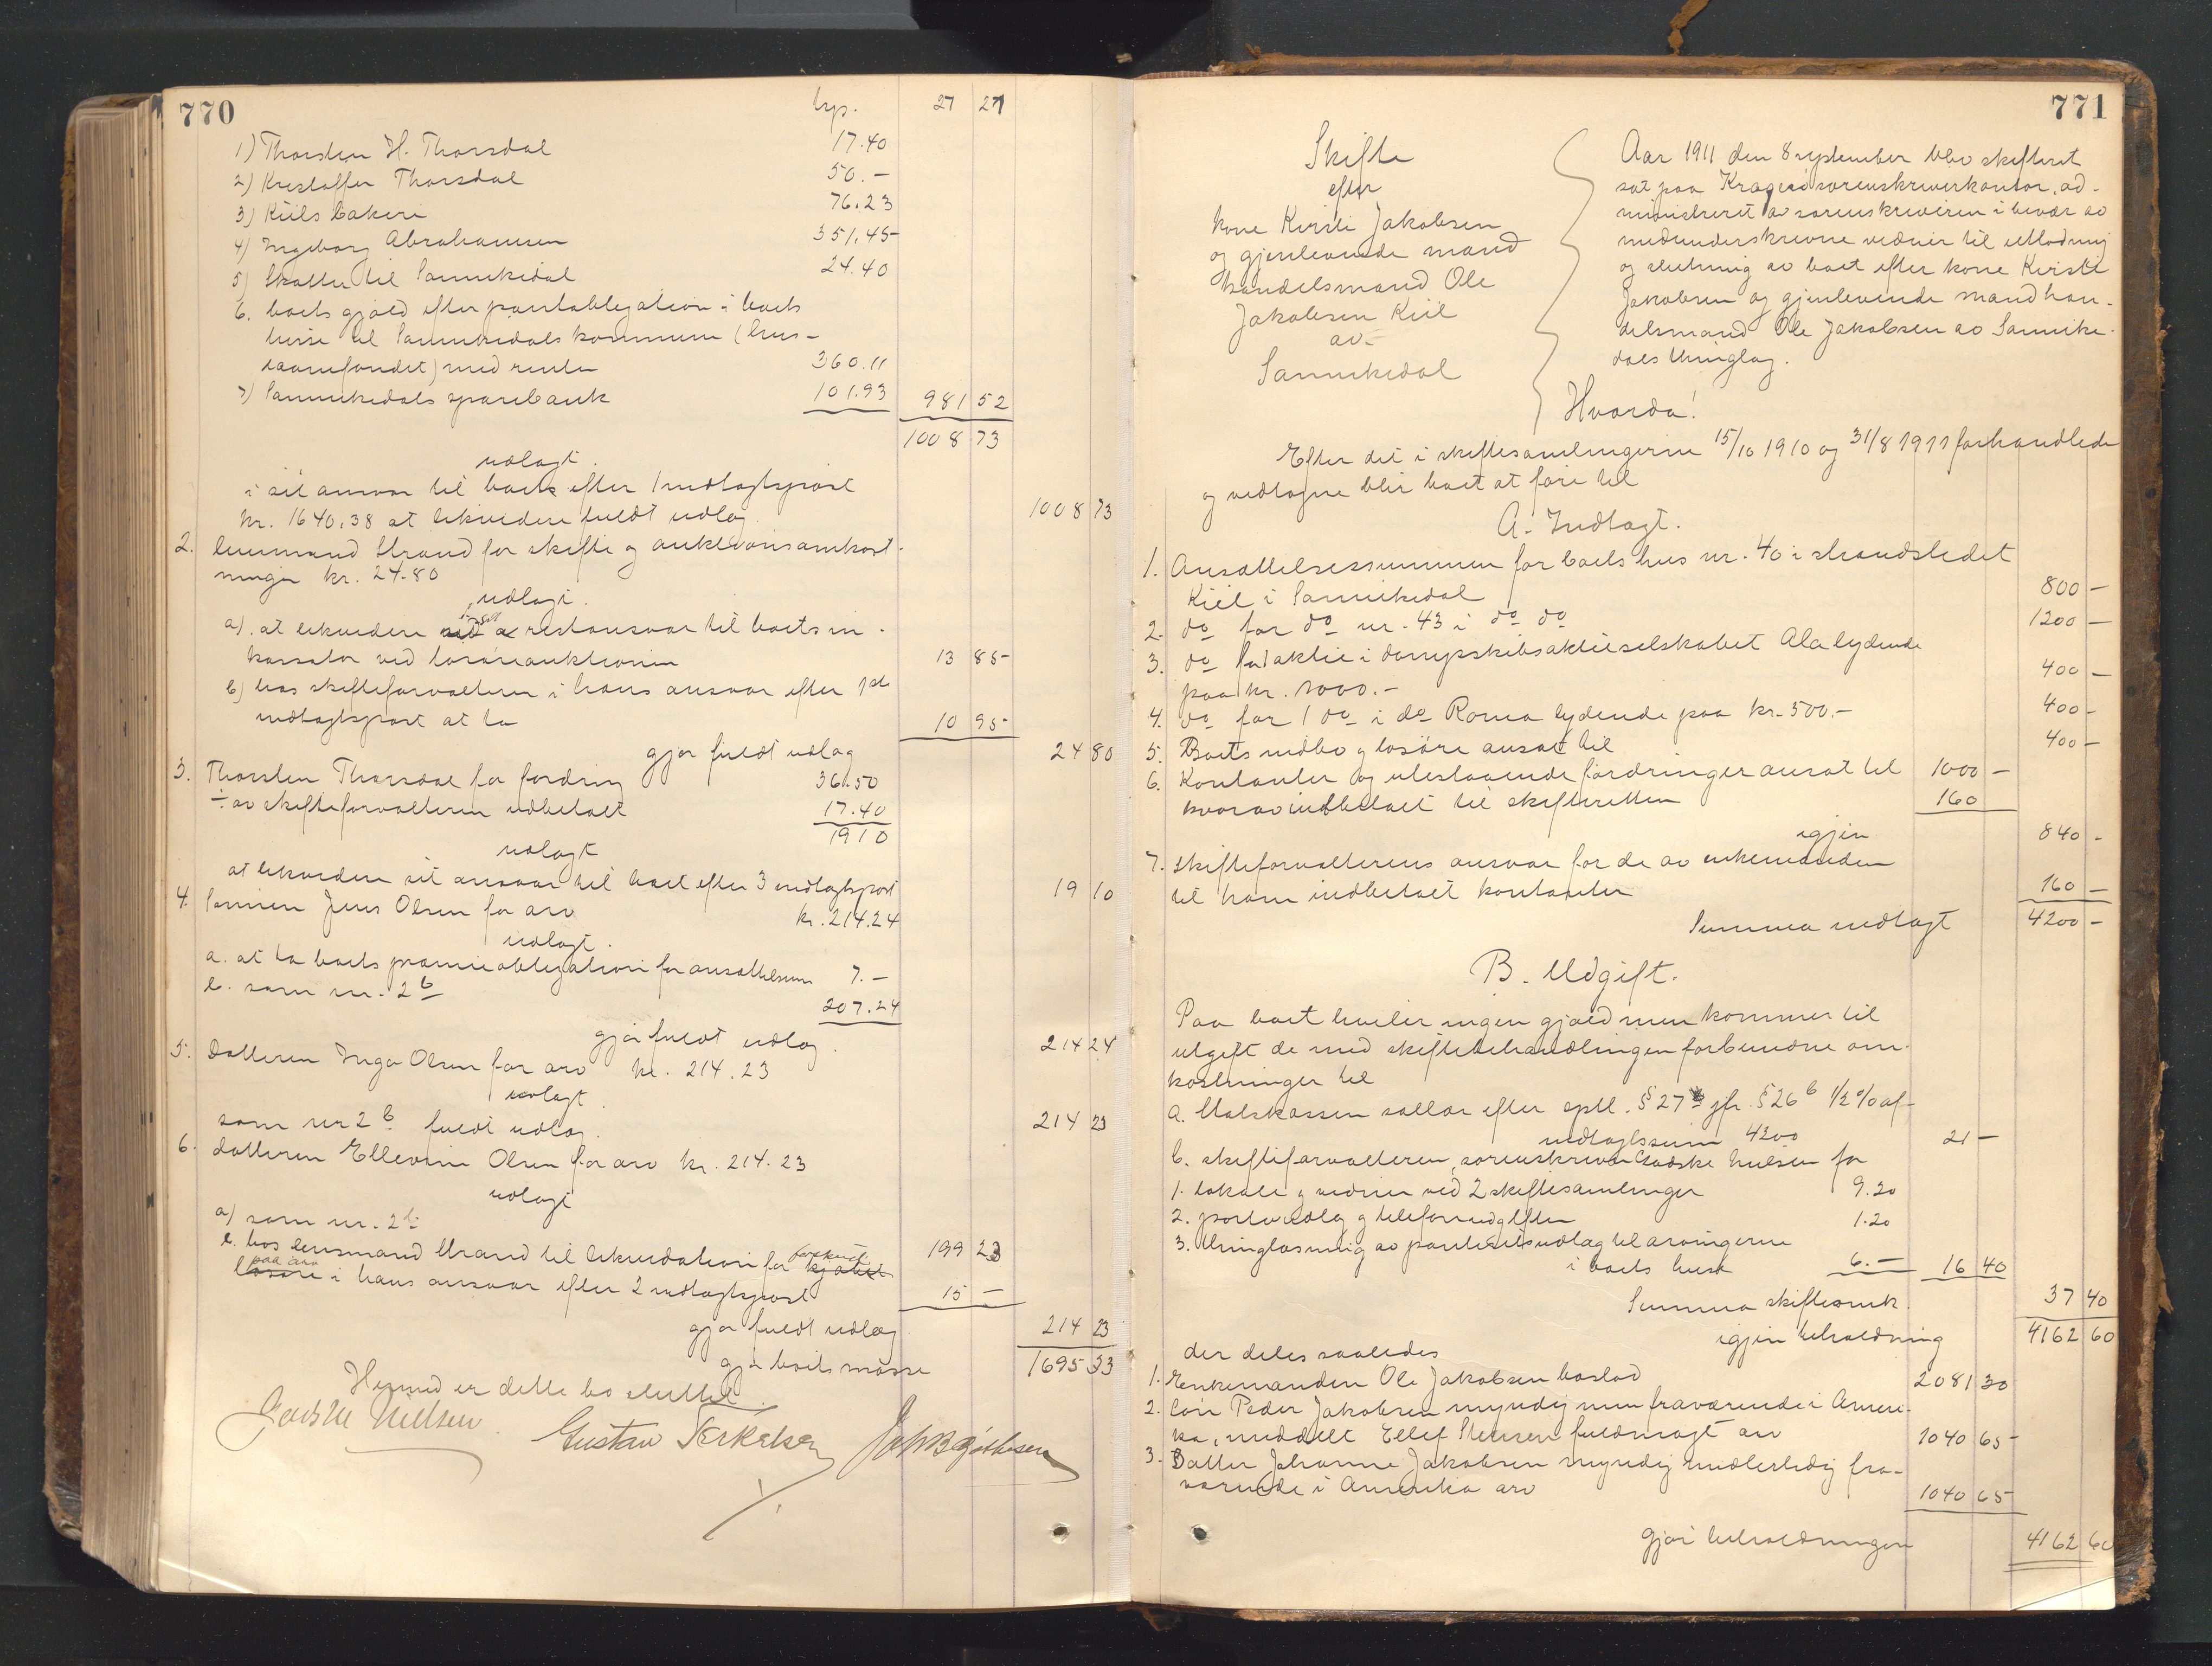 770
trp. 27 27
1) Thorsten H. Thorsdal 17.40
2) Kristoffer Thorsdal 50.-
3) Kiils bakeri 76.23
4) Ingeborg Abrahamsen 351.45
5) Skatter til Sannikedal 24.40
6. boets gjæld efter pantobligation i boets
huse til Sannikedals kommune (hus-
laanefondet) med renter 360.11
7) Sannikedals sparebank 101.93 981 52
1008 73
utlagt.
i sit ansvar til boet efter 1 indtægtspost
kr. 1640.38 at likvidere fuldt udlæg 1008 73
2. lensmand Strand for skifte og auktionsomkost-
ninger kr. 24.80
utlagt.
a). at likvidere i sit restansvar til boet som in-
kassator ved løsøreauktionen 13 85
b) hos skifteforvalteren i hans ansvar efter 1ste
indtægtspost at ta 10 95
gjør fuldt utlæg 24 80
3. Thorsten Thorsdal for fordring 36.50
÷ av skifteforvalteren utbetalt 17.40
19 10
utlagt
at likvidere sit ansvar til boet efter 3 indtægtspost 19 10
4. Sønnen Jens Olsen for arv kr. 214.24
utlagt.
a. at ta boets præmieobligation for ansættelsessum 7.-
b. som nr. 2 b 207.24
gjør fuldt utlæg. 214 24
5. Datteren Inga Olsen for arv kr. 214.23
utlagt.
som nr 2 b fuldt utlæg. 214 23
6. datteren Ellevine Olsen for arv kr. 214.23
utlagt
a) som nr. 2 b 199 23
b. hos lensmand Strand til likvidation for
paa arv
løsøre i hans ansvar efter 2 indtægtspost 15 -
gjør fuldt utlæg 214 23
gjør boets masse 1695 33
Hermed er dette bo sluttet.
Godske Nielsen Gustav Terkelsen
771
Skifte
efter
kone Kirsti Jakobsen
og gjenlevende mand
handelsmand Ole
Jakobsen Kiil
av
Sannikedal
Aar 1911 den 8 september blev skifteret
sat paa Kragerø sorenskriverkontor, ad-
ministreret av sorenskriveren i bevær av
medunderskrevne vidner til utlodning
og slutning av boet efter kone Kirsti
Jakobsen og gjenlevende mand han-
delsmand Ole Jakobsen av Sannike-
dals thinglag.
Hvorda!
Efter det i skiftesamlingerne 15/10 1910 og 31/8 1911 forhandlede
og vedtagne blir boet at føre til
A. Indtægt.
1. Ansættelsessummen for boets hus nr. 40 i strandstedet
Kiil i Sannikedal 800 -
2. do for do nr. 43 i do do 1200 -
3. do for 1 aktie i dampskibsaktieselskabet Ala lydende
paa kr. 1000.- 400 -
4. do for 1 do i do Roma lydende paa kr. 500.- 400 -
5. Boets indbo og løsøre ansat til 400 -
6. Kontanter og utestaaende fordringer ansat til 1000 -
hvorav indbetalt til skifteretten 160
igjen 840 -
7. skifteforvalterens ansvar for de av enkemanden
til ham indbetalt kontanter 160 -
Summa indtægt 4200 -
B. Udgift.
Paa boet hviler ingen gjæld men kommer til
utgift de med skiftebehandlingen forbundne om-
kostninger til
a. Statskassen sallar efter sptl. § 27 jfr. § 26 b 1/2 % af
indtægtssum 4200 21 -
b. skifteforvalteren, sorenskriver Godske Nielsen for
1. lokale og vidner ved 2 skiftesamlinger 9.20
2. portoutlæg og telefonudgifter 1.20
3. thinglæsning av panteretsutlæg til arvingerne
i boets huse 6.- 16 40
Summa skifteomk. 37 40
igjen beholdning 4162 60
der deles saaledes
1. Enkemanden Ole Jakobsen boslod 2081 30
2. søn Peder Jakobsen myndig men fraværende i Ameri-
ka, meddelt Ellef Stensen fuldmagt arv 1040 65
3. Datter Johanne Jakobsen myndig midlertidig fra-
værende i Amerika arv 1040 65
gjør beholdningen 4162 60